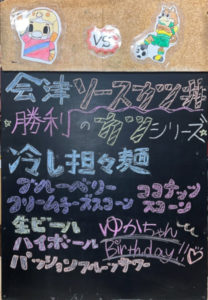 VS
会津ソースカツ丼
勝利のカツシリーズ
冷し担々麺
ブルーベリー
クリームチーズスコーン
ココナッツ
スコーン
生ビール
ハイボール
パッションフルーツサワー
ゆかちゃん
Birthday!!